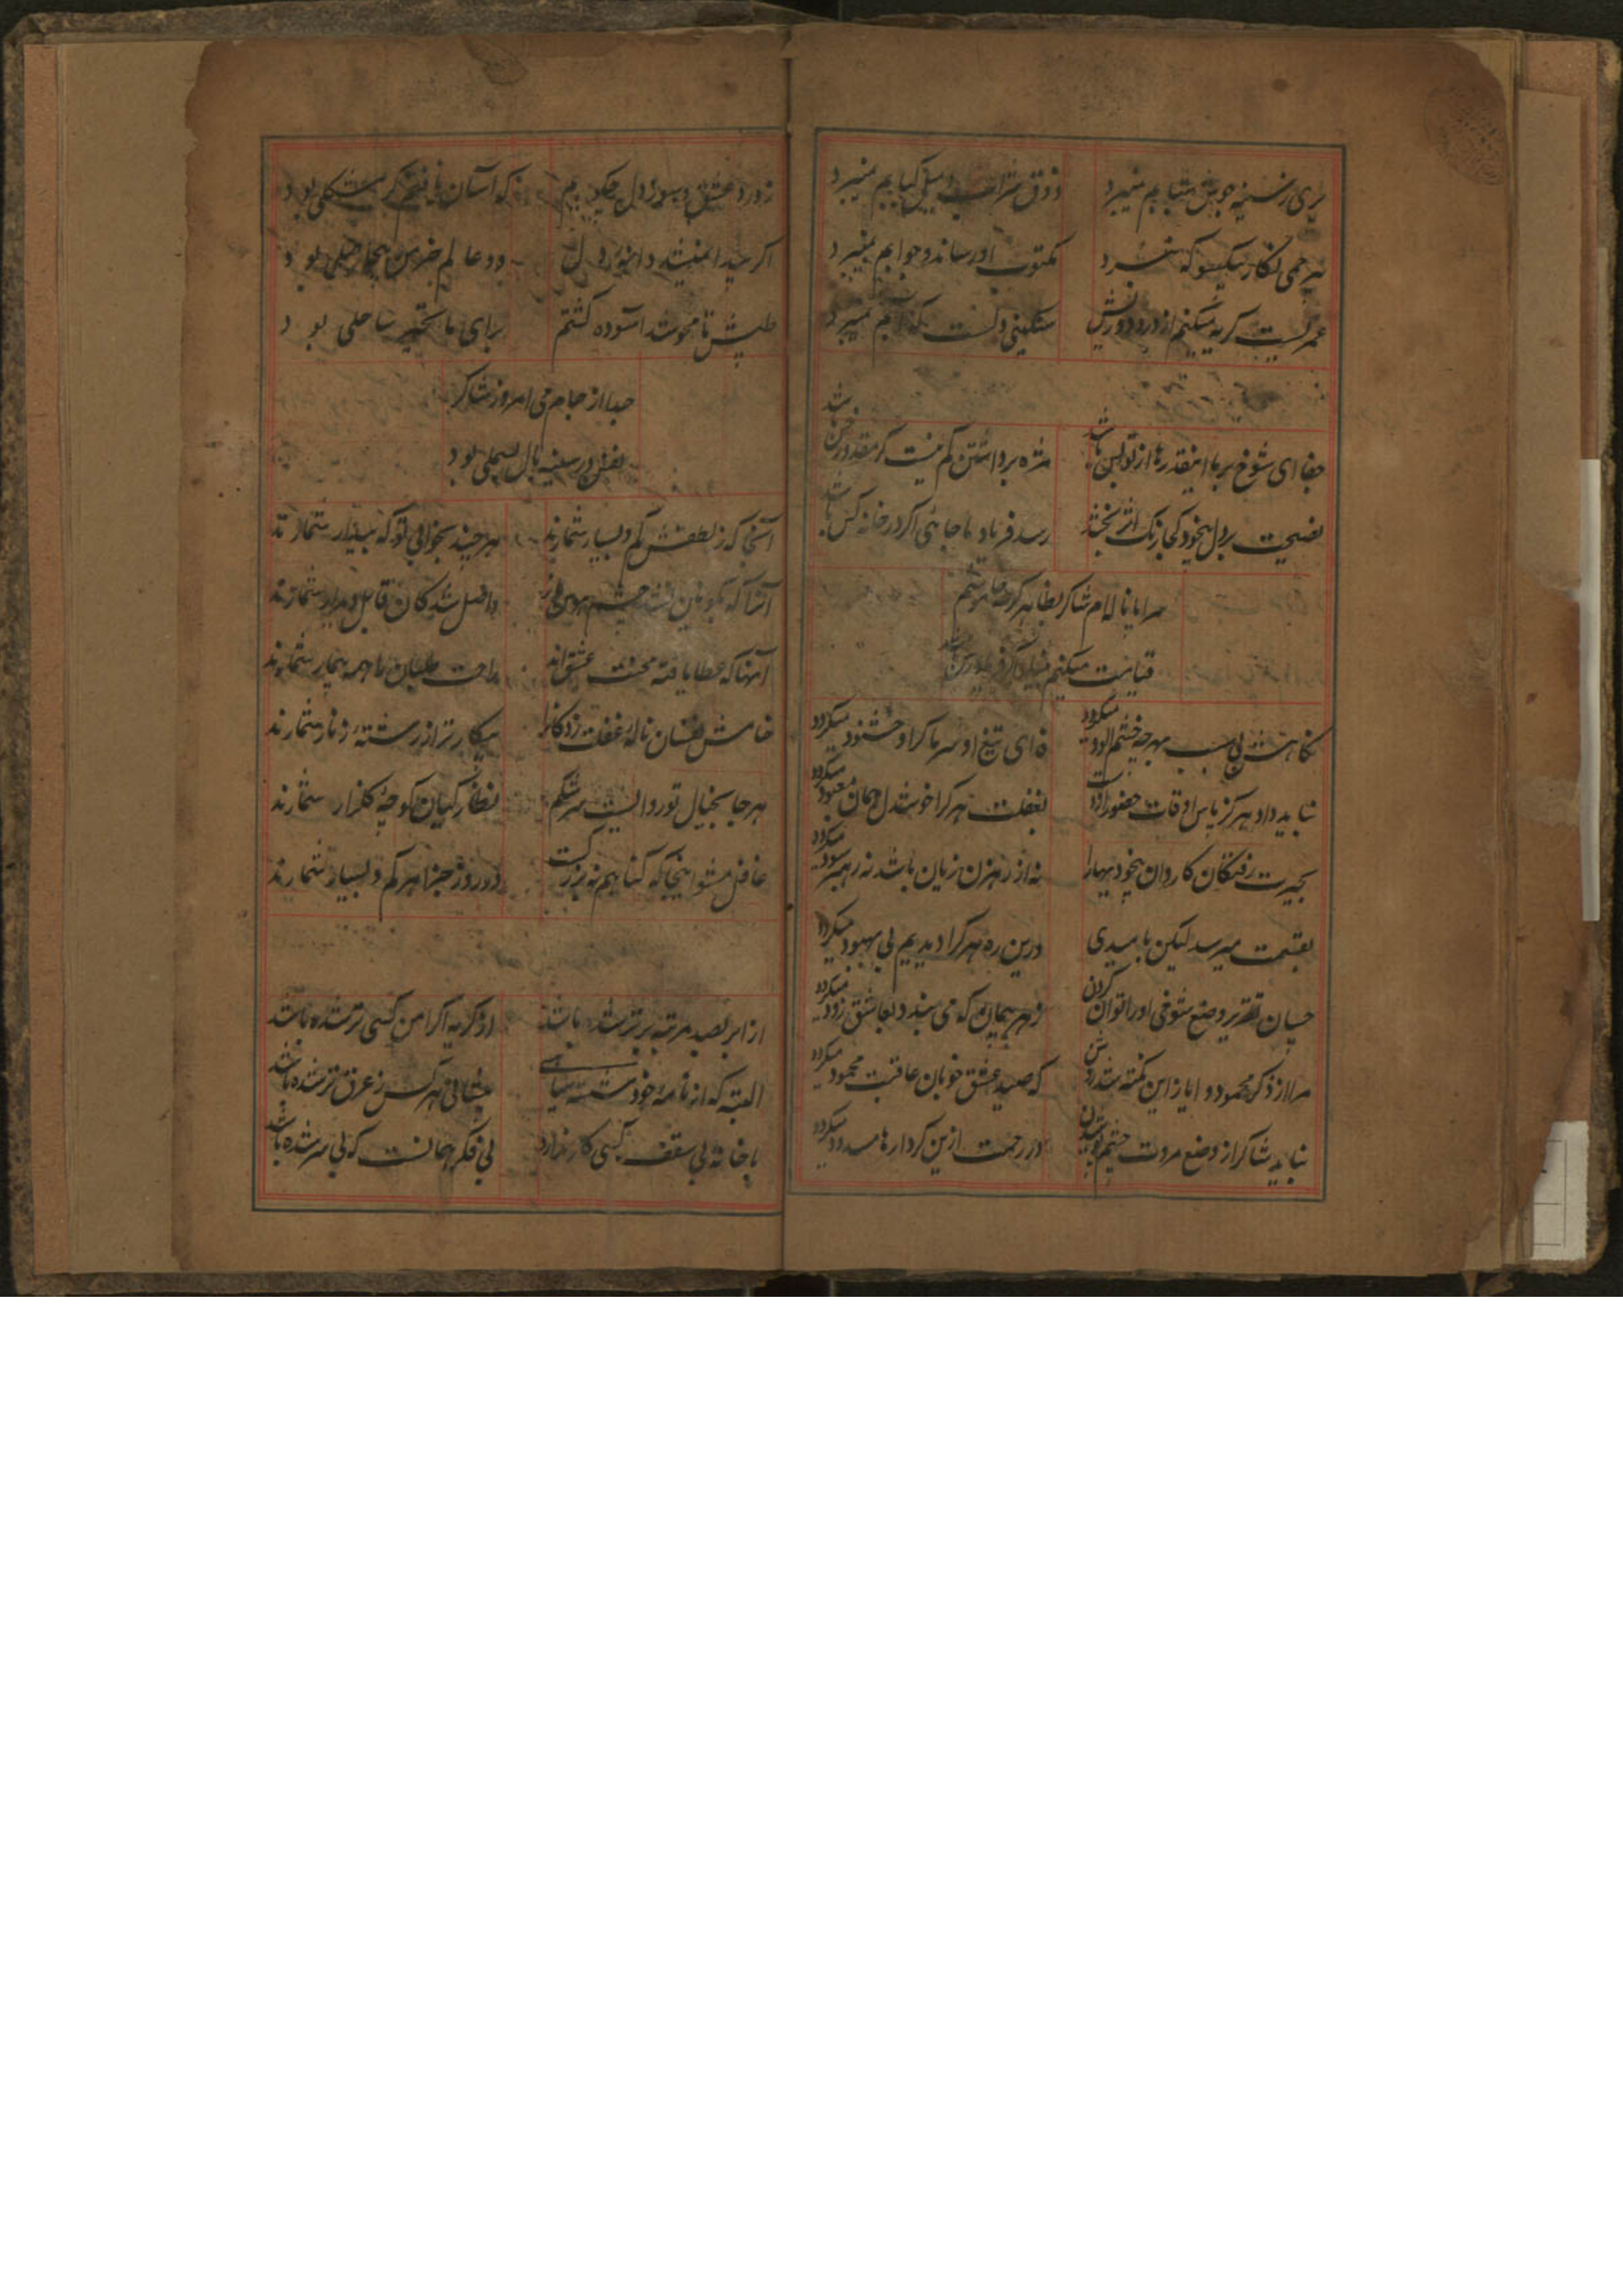 پری رخ شیشه جوش شبابم نمیبرد ذوق شراب و میل کبابم نمیبرد
بیرحمی نگار یکیسو که
مکتوب او رساند و جوابم نمیبرد
عمریست گریه میکنم از درد دوریش سنگینی دلست که آبم نمیبرد
جفا ای شوخ بر ما اینقدرها از تو بس باشد مژه برداشتن کم نیست گر مقدور خس باشد
نصیحت بر دل بیخود کجا رنگ اثر بخشد رسد فریاد ما جائی اگر در خانه کس باشد
سراپا ناله‌ام شاکر بظاهر گرچه خاموشم
قیامت میکنم
نگاهت بی سبب بهر چه خشم آلود میگردد تیغ او سر ما گر او خشنود میگردد
نباید داد هرگز پاس اوقات حضور از دست بغفلت هر کرا خوشدل همان معبود میگردد
بحیرت رفتگان کاروان بیخودیها را نه از رهزن زیان باشد نه رهبر سود میگردد
بقسمت میرسد لیکن بامیدی درین ره هر کرا دیدیم بی بهبود میگردد
چسان تقریر وضع شوخی او را توان کردن ز هر پیمان که می بندد بعاشق زود میگردد
مرا از ذکر محمود و ایاز این نکته شد روشن که صید عشق خوبان عاقبت محمود میگردد
نباید شاکر از وضع مروت چشم پوشیدن در رحمت ازین کردارها مسدود میگردد
ز درد عشق و سوز دل چگویم که آسان یافتم گر مشکلی بود
اگر
دو عالم جز من بیحاصلی بود
طپش تا محو شد آسوده گشتم برای ما تحیر ساحلی بود
جدا از جام می امروز شاکر
نفس در سینه بال بسملی بود
آنجا که ز لطفش کم و بسیار شمارند هر چند بخوابی تو که بیدار شمارند
واصل شدگان قابل دیدار شمارند
آنها که عطا یافته محنت عشق‌اند راحت طلبان را همه بیمار شمارند
خامش نفسان ناله غفلت زدگان را بیکارتر از رشته زنار شمارند
هر جا بخیال تو روانست سرشکم نظارگیان کوچه گلزار شمارند
غافل مشو اینجا که گناهم نه بزرگست در روز جزا هر کم و بسیار شمارند
از ابر بصد مرتبه برتر شده باشد از گریه اگر دامن کسی تر شده باشد
البته که از نامه خود شسته سیاهی پیشانی هر کس ز عرق تر شده باشد
با خانه بی سقف کسی کار ندارد بی فکر همانست که بی سر شده باشد